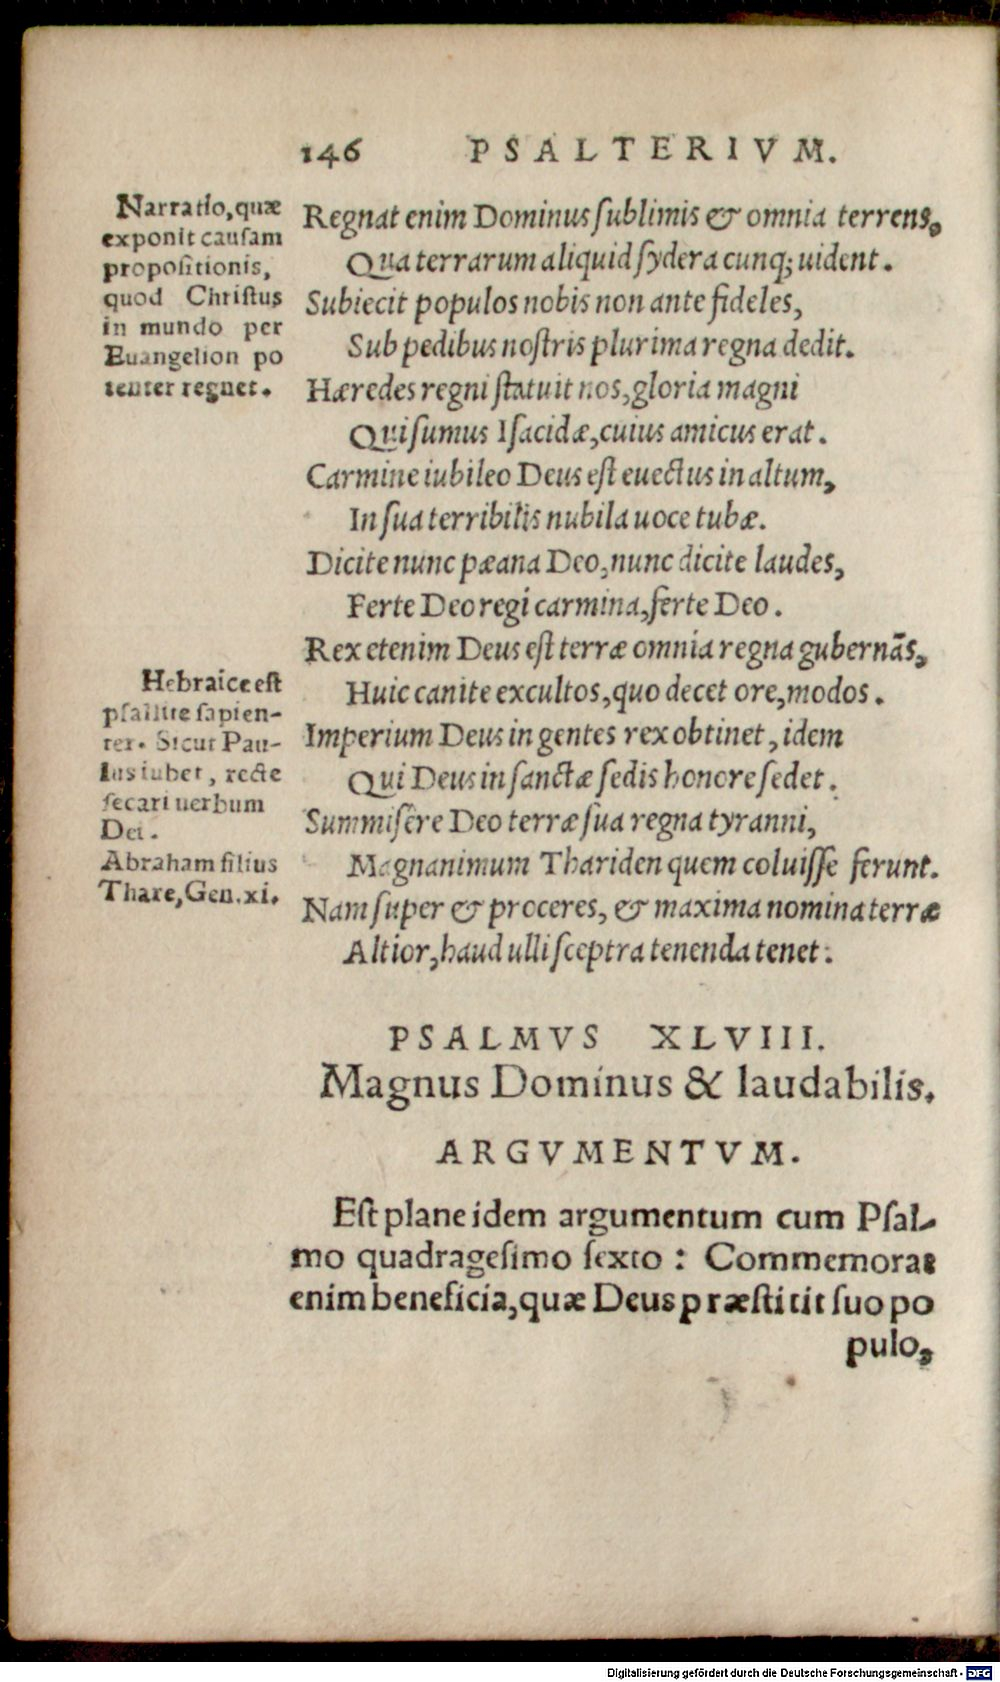 146 PSALTERIVM.
Narratio, quæ
exponit causam
propositionis,
quod Christus
in mundo per
Euangelion po
tenter regnet.
Regnat enim Dominus sublimis & omnia terrens,
Qua terrarum aliquid sydera cunq; uident.
Subiecit populos nobis non ante fideles,
Sub pedibus nostris plurima regna dedit.
Hæredes regni statuit nos, gloria magni
Qui sumus Isacidæ, cuius amicus erat.
Carmine iubileo Deus est euectus in altum,
In sua terribilis nubila uoce tubæ.
Dicite nunc pæana Deo, nunc dicite laudes,
Ferte Deo regi carmina, ferte Deo.
Rex etenim Deus est terræ omnia regna gubernãs,
Huic canite excultos, quo decet ore, modos.
Imperium Deus in gentes rex obtinet, idem
Qui Deus in sanctæ sedis honore sedet.
Summisêre Deo terræ sua regna tyranni,
Magnanimum Thariden quem coluisse ferunt.
Nam super & proceres, & maxima nomina terræ
Altior, haud ulli sceptra tenenda tenet.
Hebraice est
psallite sapien-
ter. Sicut Pau-
lus iubet, recte
secari uerbum
Dei.
Abraham filius
Thare, Gen. xi.
PSALMVS XLVIII.
Magnus Dominus & laudabilis.
ARGVMENTVM.
Est plane idem argumentum cum Psal-
mo quadragesimo sexto: Commemorat
enim beneficia, quæ Deus præstitit suo po
pulo,
Digitalisierung gefördert durch die Deutsche Forschungsgemeinschaft - DFG